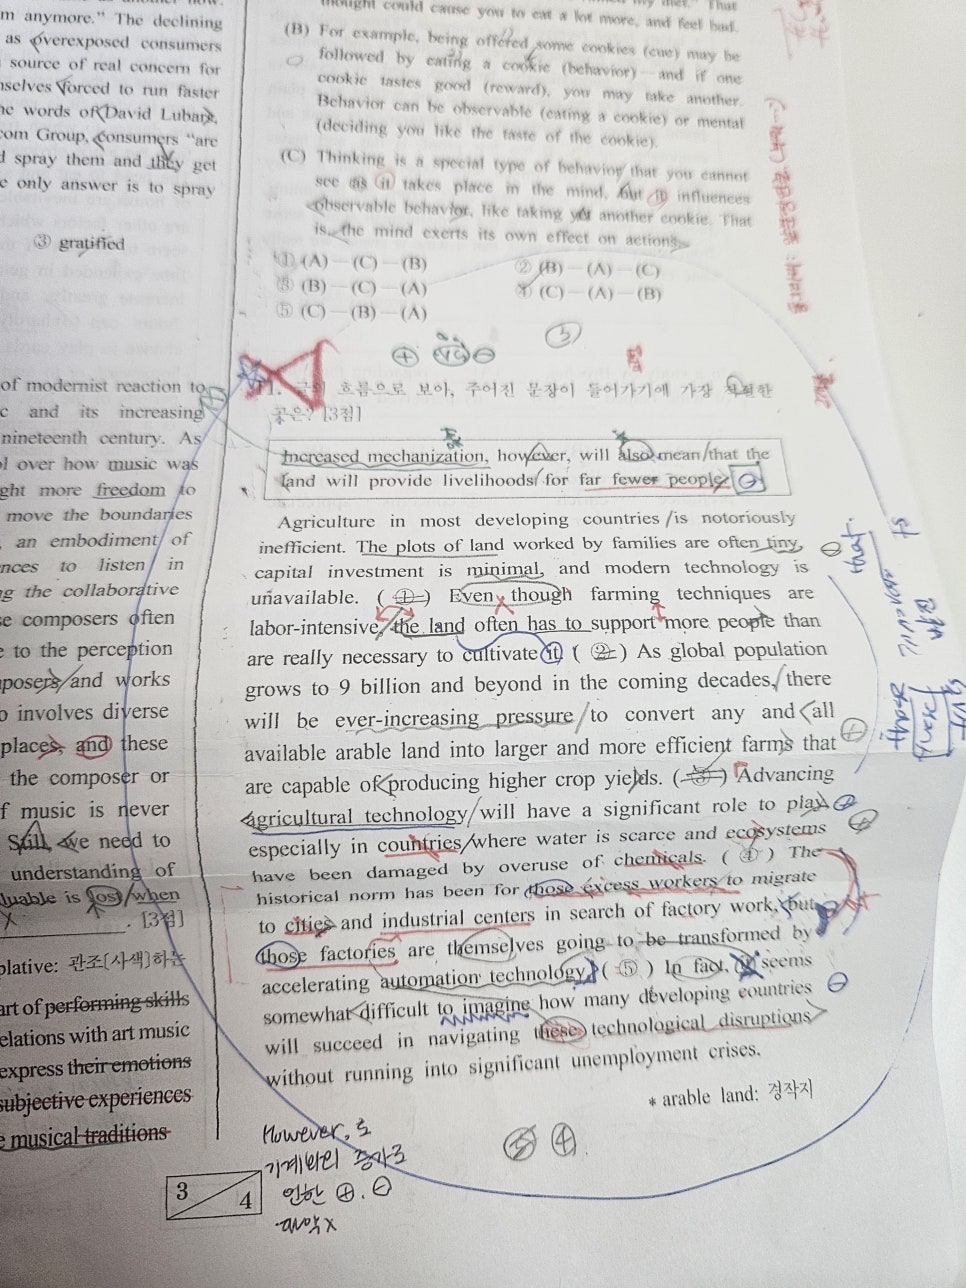 m anymore." The declining
as overexposed consumers
source of real concern for
nselves forced to run faster
he words of David Lubars,
com Group, consumers "are
d spray them and they get
e only answer is to spray
③ gratified
of modernist reaction to
c and its increasing
nineteenth century. As
ol over how music was
ght more freedom to
move the boundaries
, an embodiment of
nces to listen in
ng the collaborative
se composers often
e to the perception
nposers and works
o involves diverse
places, and these
the composer or
f music is never
Still, we need to
understanding of
luable is lost when
. [3점]
plative: 관조[사색]하는
art of performing skills
elations with art music
express their emotions
subjective experiences
e musical traditions
3
4
thought could cause you to eat a lot more, and feel bad.
(B) For example, being offered some cookies (cue) may be
followed by eating a cookie (behavior) — and if one
cookie tastes good (reward), you may take another.
Behavior can be observable (eating a cookie) or mental
(deciding you like the taste of the cookie).
(C) Thinking is a special type of behavior that you cannot
see as it takes place in the mind, but it influences
observable behavior, like taking yet another cookie. That
is, the mind exerts its own effect on actions.
① (A) — (C) — (B) ② (B) — (A) — (C)
③ (B) — (C) — (A) ④ (C) — (A) — (B)
⑤ (C) — (B) — (A)
⑤
⊕ ⊖
11. 글의 흐름으로 보아, 주어진 문장이 들어가기에 가장 적절한
곳은? [3점]
Increased mechanization, however, will also mean that the
land will provide livelihoods for far fewer people.
Agriculture in most developing countries is notoriously
inefficient. The plots of land worked by families are often tiny,
capital investment is minimal, and modern technology is
unavailable. ( ① ) Even though farming techniques are
labor-intensive, the land often has to support more people than
are really necessary to cultivate it. ( ② ) As global population
grows to 9 billion and beyond in the coming decades, there
will be ever-increasing pressure to convert any and all
available arable land into larger and more efficient farms that
are capable of producing higher crop yields. ( ③ ) Advancing
agricultural technology will have a significant role to play,
especially in countries where water is scarce and ecosystems
have been damaged by overuse of chemicals. ( ④ ) The
historical norm has been for those excess workers to migrate
to cities and industrial centers in search of factory work, but
those factories are themselves going to be transformed by
accelerating automation technology. ( ⑤ ) In fact, it seems
somewhat difficult to imagine how many developing countries
will succeed in navigating these technological disruptions
without running into significant unemployment crises.
* arable land: 경작지
However, 로
기계화의 증가로
인한 ⊕. ⊖
⑤ ④